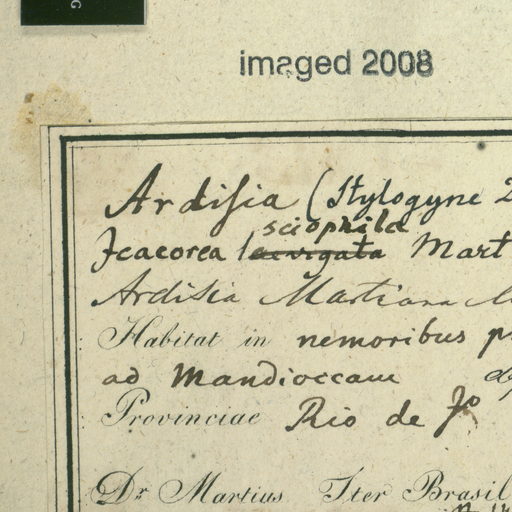 imaged 2008
Ardisia (Stylogyne
sciophila
Icacorea laevigata Mart
Ardisia Martiana
Habitat in nemoribus
ad Mandioccam
Provinciae Rio de Jo
Dr. Martius Iter Brasil